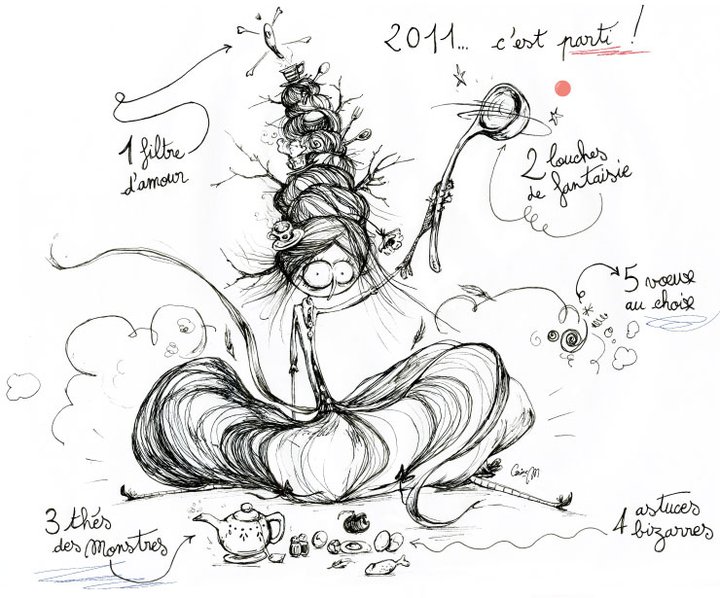 2011... c'est parti !
1 filtre
d'amour
2 louches
de fantaisie
5 voeux
au choix
3 thés
des Monstres
4 astuces
bizarres